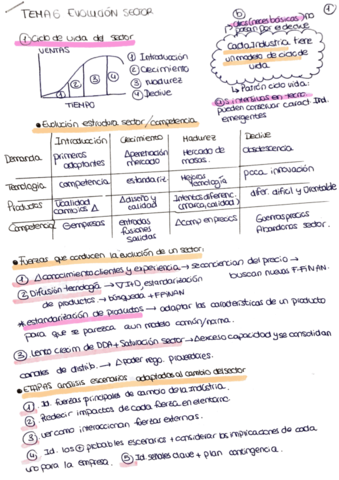 TEMA 6 EVOLUCIÓN SECTOR
① Ciclo de vida del sector.
VENTAS
① ② ③ ④
TIEMPO
① Introducción
② Crecimiento
③ Madurez
④ Declive
ⓑ
①
no
pasan por el declive
Cada industria tiene
un modelo de ciclo de
vida
↳ Patrón ciclo vida:
pueden conservar caract Ind.
emergentes.
• Evolución estructura sector/competencia.
Introducción Crecimiento Madurez Declive
Demanda primeros adoptantes mercado Mercado de masas. Obsolescencia
Tecnología competencia estandariz. tecnología poca innovación
Productos calidad y calidad (marca, calidad) difer. difícil y
Competencia empresas entradas fusiones salidas en precios Guerras precios sector.
• Fuerzas que conducen la evolución de un sector.
① Δ conocimiento clientes y experiencia → se conciencian del precio →
buscan nuevas
② Difusión tecnología → ∇ I+D estandarización
de productos → búsqueda
* estandarización de productos → adaptar las características de un producto
para que se parezca a un modelo común/norma.
③ Lento crecim de DDA + Saturación sector → Δ exceso capacidad y se consolidan
canales de distrib. → Δ poder nego. proveedores.
• ETAPAS análisis escenarios adaptados al cambio del sector
①. Id. fuerzas principales de cambio de la industria.
②. Predecir impactos de cada fuerza en el entorno.
③. ver como interaccionan fuerzas externas.
④. Id. los ⊕ probables escenarios + considerar las implicaciones de cada
uno para la empresa. ⑤. Id. señales clave + plan contingencia.